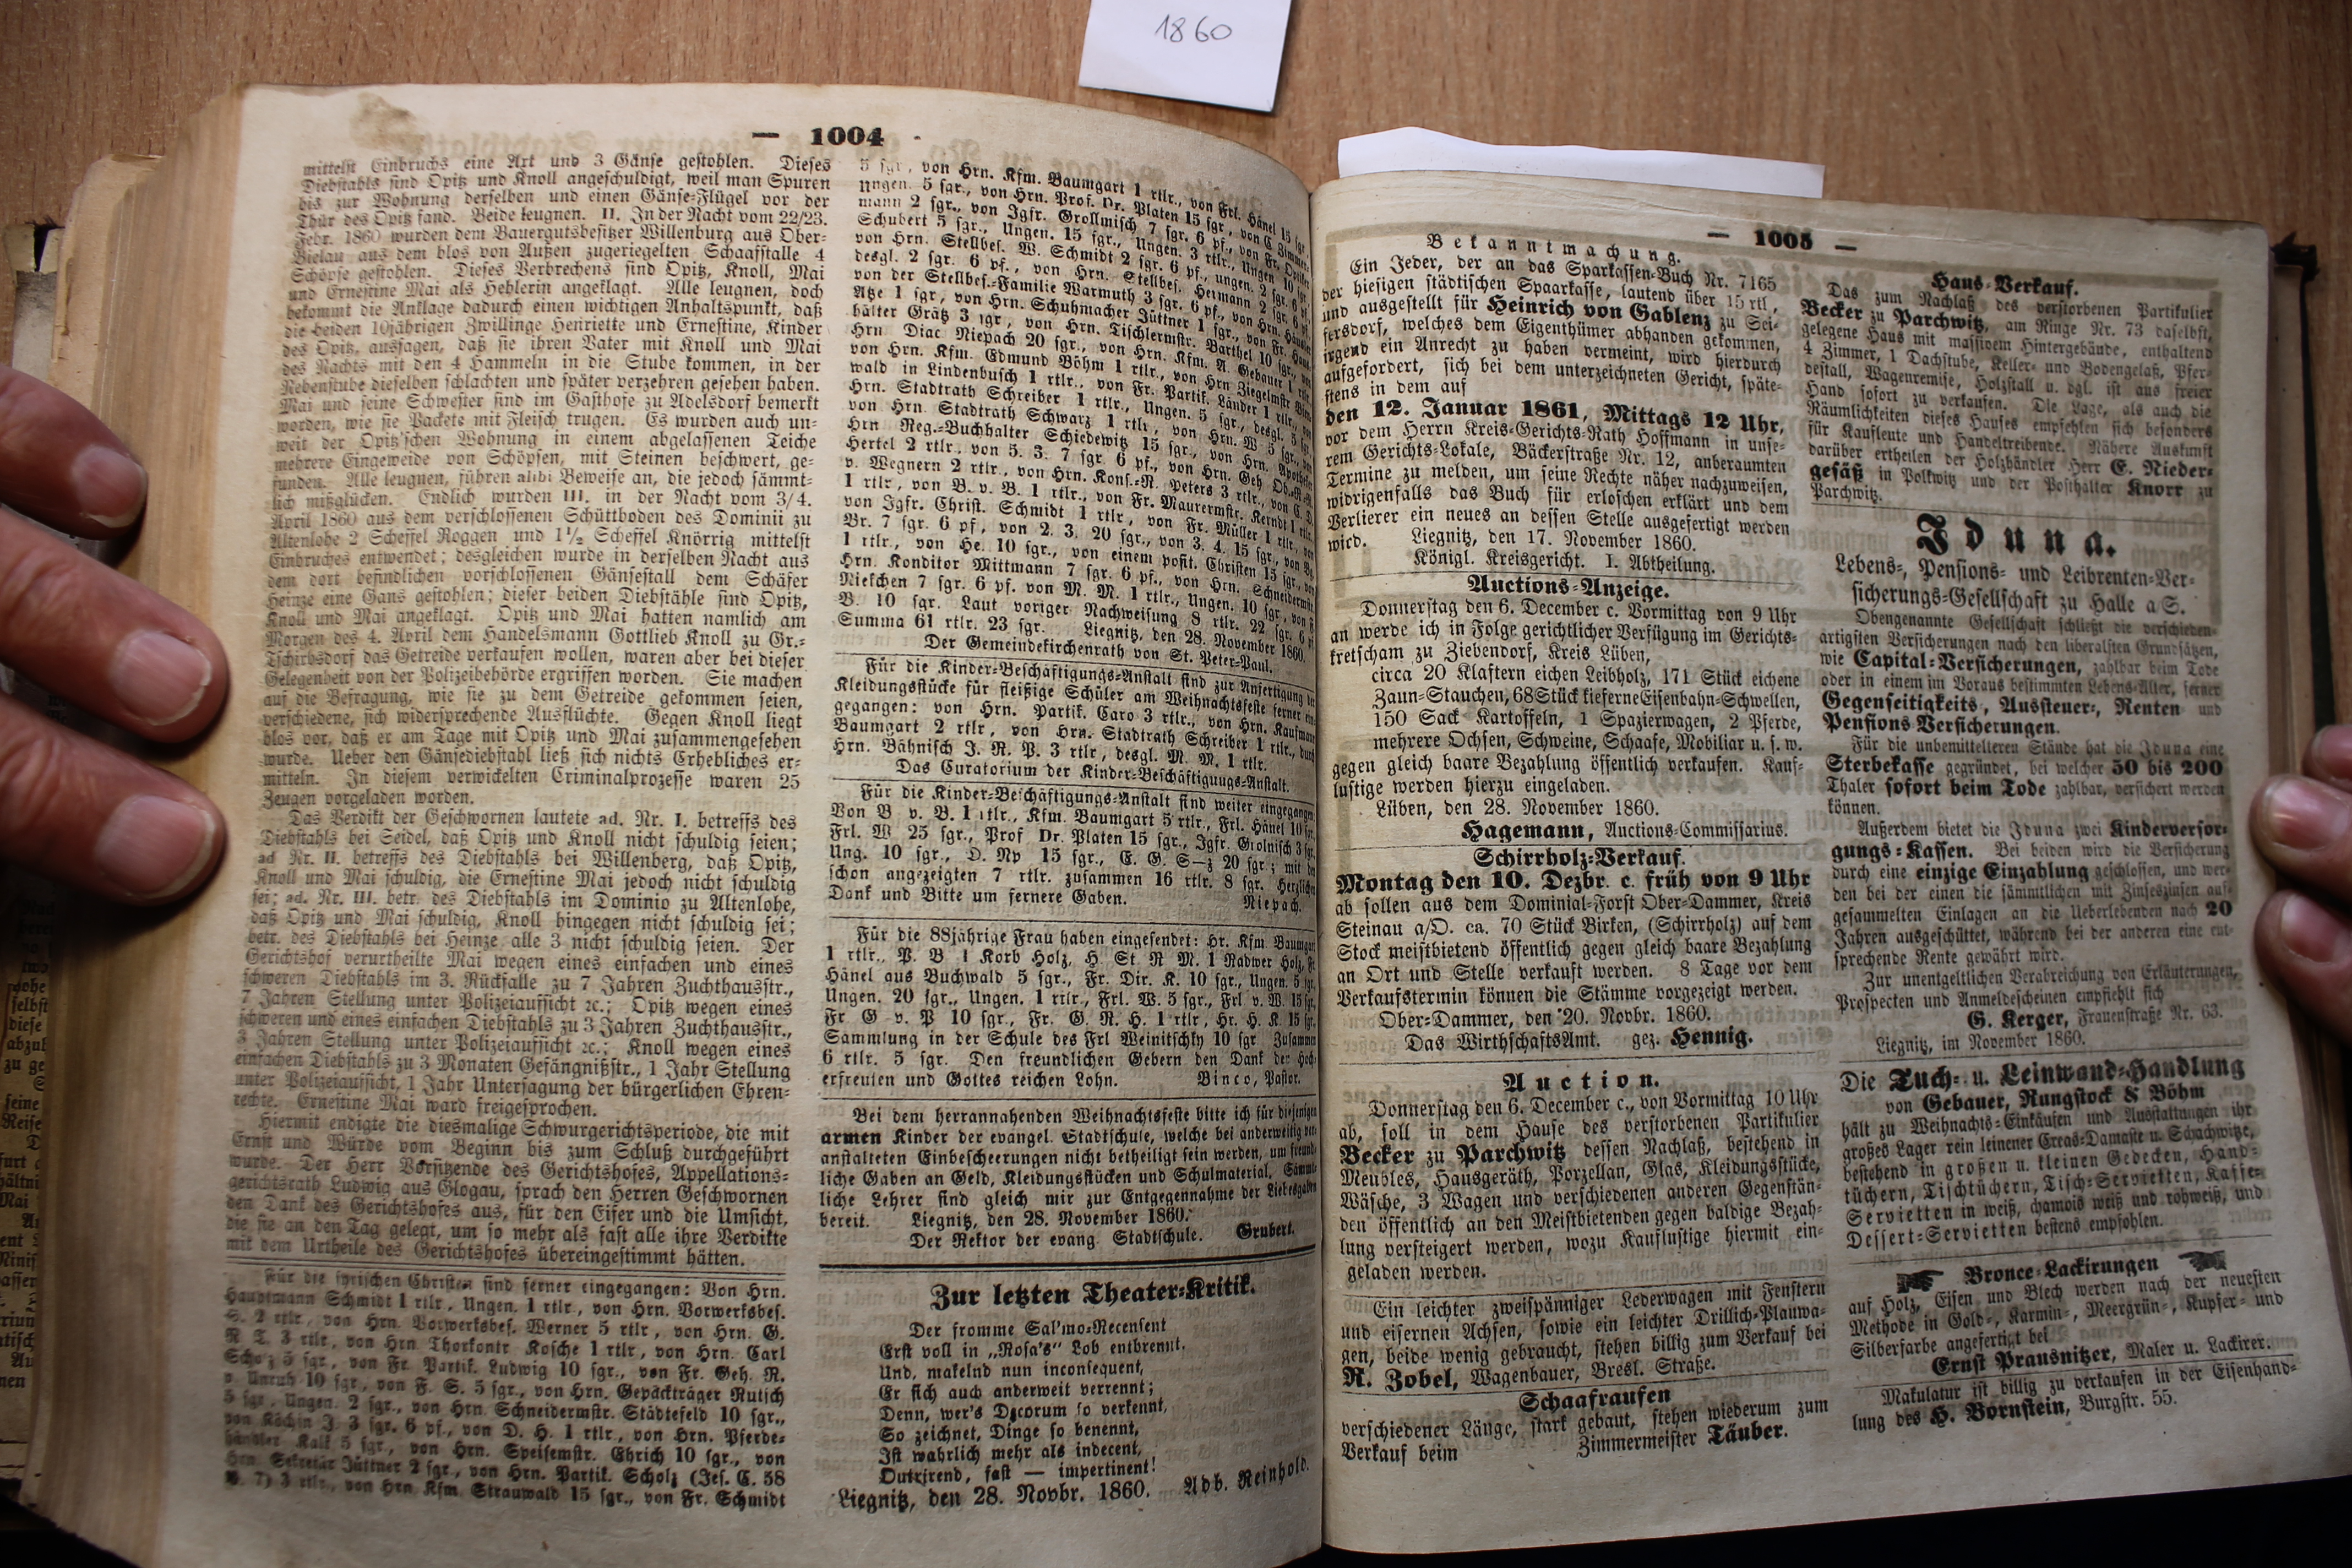 1860
— 1004
mittelst Einbruchs eine Art und 3 Gänse gestohlen. Dieses
Diebstahls sind Opitz und Knoll angeschuldigt, weil man Spuren
bis zur Wohnung derselben und einen Gänse-Flügel vor der
Thür des Opitz fand. Beide leugnen. II. In der Nacht vom 22/23.
Febr. 1860 wurden dem Bauergutsbesitzer Willenburg aus Ober-
Bielau aus dem blos von Außen zugeriegelten Schaafstalle 4
Schöpse gestohlen. Dieses Verbrechens sind Opitz, Knoll, Mai
und Ernestine Mai als Hehlerin angeklagt. Alle leugnen, doch
bekommt die Anklage dadurch einen wichtigen Anhaltspunkt, daß
die beiden 10jährigen Zwillinge Henriette und Ernestine, Kinder
des Opitz, aussagen, daß sie ihren Vater mit Knoll und Mai
des Nachts mit den 4 Hammeln in die Stube kommen, in der
Nebenstube dieselben schlachten und später verzehren gesehen haben.
Mai und seine Schwester sind im Gasthofe zu Adelsdorf bemerkt
worden, wie sie Packete mit Fleisch trugen. Es wurden auch un-
weit der Opitz'schen Wohnung in einem abgelassenen Teiche
mehrere Eingeweide von Schöpsen, mit Steinen beschwert, ge-
funden. Alle leugnen, führen alibi Beweise an, die jedoch sämmt-
lich mißglücken. Endlich wurden III. in der Nacht vom 3/4.
April 1860 aus dem verschlossenen Schüttboden des Dominii zu
Altenlohe 2 Scheffel Roggen und 1½ Scheffel Knörrig mittelst
Einbruches entwendet; desgleichen wurde in derselben Nacht aus
dem dort befindlichen vorschlossenen Gänsestall dem Schäfer
Heinze eine Gans gestohlen; dieser beiden Diebstähle sind Opitz,
Knoll und Mai angeklagt. Opitz und Mai hatten namlich am
Morgen des 4. April dem Handelsmann Gottlieb Knoll zu Gr.-
Tschirbsdorf das Getreide verkaufen wollen, waren aber bei dieser
Gelegenheit von der Polizeibehörde ergriffen worden. Sie machen
auf die Befragung, wie sie zu dem Getreide gekommen seien,
verschiedene, sich widersprechende Ausflüchte. Gegen Knoll liegt
blos vor, daß er am Tage mit Opitz und Mai zusammengesehen
wurde. Ueber den Gänsediebstahl ließ sich nichts Erhebliches er-
mitteln. In diesem verwickelten Criminalprozesse waren 25
Zeugen vorgeladen worden.
Das Verdikt der Geschwornen lautete ad. Nr. I. betreffs des
Diebstahls bei Seidel, daß Opitz und Knoll nicht schuldig seien;
ad Nr. II. betreffs des Diebstahls bei Willenberg, daß Opitz,
Knoll und Mai schuldig, die Ernestine Mai jedoch nicht schuldig
sei; ad. Nr. III. betr. des Diebstahls im Dominio zu Altenlohe,
daß Opitz und Mai schuldig, Knoll hingegen nicht schuldig sei;
betr. des Diebstahls bei Heinze alle 3 nicht schuldig seien. Der
Gerichtshof verurtheilte Mai wegen eines einfachen und eines
schweren Diebstahls im 3. Rückfalle zu 7 Jahren Zuchthausstr.,
7 Jahren Stellung unter Polizeiaufsicht ꝛc.; Opitz wegen eines
schweren und eines einfachen Diebstahls zu 3 Jahren Zuchthausstr.,
3 Jahren Stellung unter Polizeiaufsicht ꝛc.; Knoll wegen eines
einfachen Diebstahls zu 3 Monaten Gefängnißstr., 1 Jahr Stellung
unter Polizeiaufsicht, 1 Jahr Untersagung der bürgerlichen Ehren-
rechte. Ernestine Mai ward freigesprochen.
Hiermit endigte die diesmalige Schwurgerichtsperiode, die mit
Ernst und Würde vom Beginn bis zum Schluß durchgeführt
wurde. Der Herr Vorsitzende des Gerichtshofes, Appellations-
gerichtsrath Ludwig aus Glogau, sprach den Herren Geschwornen
den Dank des Gerichtshofes aus, für den Eifer und die Umsicht,
die sie an den Tag gelegt, um so mehr als fast alle ihre Verdikte
mit dem Urtheile des Gerichtshofes übereingestimmt hätten.
Für die syrischen Christen sind ferner eingegangen: Von Hrn.
Hauptmann Schmidt 1 rtlr., Ungen. 1 rtlr., von Hrn. Vorwerksbes.
S. 2 rtlr., von Hrn. Vorwerksbes. Werner 5 rtlr., von Hrn. G.
R T. 3 rtlr., von Hrn Thorkontr Kosche 1 rtlr., von Hrn. Carl
Scholz 5 sgr., von Fr. Partik. Ludwig 10 sgr., von Fr. Geh. R.
v Unruh 10 sgr., von F. S. 5 sgr., von Hrn. Gepäckträger Rutsch
5 sgr., Ungen. 2 sgr., von Hrn Schneidermstr. Städtefeld 10 sgr.,
von Köchin J. 3 sgr. 6 pf., von D. H. 1 rtlr., von Hrn. Pferde-
händler Kalk 5 sgr., von Hrn. Speisemstr. Ehrich 10 sgr., von
Hrn. Sekretär Jüttner 2 sgr., von Hrn. Partik. Scholz (Jes. C. 58
7) 3 rtlr., von Hrn Kfm. Strauwald 15 sgr., von Fr. Schmidt
5 sgr., von Hrn. Kfm. Baumgart 1 rtlr., von Frl. Hänel 15 sgr.,
ungen. 5 sgr., von Hrn. Prof. Dr. Platen 15 sgr., von C. Zimmer-
mann 2 sgr., von Jgfr. Grollmisch 7 sgr. 6 pf., von Fr. Optik.
Schubert 5 sgr., Ungen. 15 sgr., Ungen. 3 rtlr., Ungen 10 sgr.,
von Hrn. Stellbes. W. Schmidt 2 sgr. 6 pf., ungen. 2 sgr. 6 pf.,
desgl. 2 sgr. 6 pf., von Hrn. Stellbes. Hermann 2 sgr. 6 pf.,
von der Stellbes.-Familie Warmuth 3 sgr. 6 pf., von Hrn. Händler
Atze 1 sgr, von Hrn. Schuhmacher Jüttner 1 sgr., von Fr. Haus-
hälter Grätz 3 sgr, von Hrn. Tischlermstr. Barthel 10 sgr., von
Hrn Diac Niepach 20 sgr., von Hrn. Kfm. A. Gebauer 1 rtlr.,
von Hrn. Kfm. Edmund Böhm 1 rtlr., von Hrn Ziegelmstr.
wald in Lindenbusch 1 rtlr., von Fr. Partik. Länder 1 rtlr.,
Hrn. Stadtrath Schreiber 1 rtlr., Ungen. 5 sgr., desgl. 5 sgr.,
von Hrn. Stadtrath Schwarz 1 rtlr., von Hrn. W 5 sgr., von
Hrn Reg.-Buchhalter Schiedewitz 15 sgr., von Hrn. Apotheker
Hertel 2 rtlr., von 5. 3. 7 sgr 6 pf., von Hrn. Geh Ob.-R.-R.
v. Wegnern 2 rtlr., von Hrn. Kons.-R. Peters 3 rtlr., von C. D.
1 rtlr., von B. v. B. 1 rtlr., von Fr. Maurermstr. Kerndt 1 rtlr.,
von Jgfr. Christ. Schmidt 1 rtlr, von Fr. Müller 1 rtlr, von
Br. 7 sgr. 6 pf, von 2. 3. 20 sgr., von 3. 4. 15 sgr., von
1 rtlr., von He. 10 sgr., von einem posit. Christen 15 sgr., von
Hrn. Konditor Mittmann 7 sgr. 6 pf., von Hrn. Schneidermstr.
Niekchen 7 sgr. 6 pf. von M. M. 1 rtlr., Ungen. 10 sgr., von
B. 10 sgr. Laut voriger Nachweisung 8 rtlr. 22 sgr. 6 pf.
Summa 61 rtlr. 23 sgr. Liegnitz, den 28. November 1860.
Der Gemeindekirchenrath von St. Peter-Paul.
Für die Kinder-Beschäftigungs-Anstalt sind zur Anfertigung
Kleidungsstücke für fleißige Schüler am Weihnachtsfeste ferner ein-
gegangen: von Hrn. Partik. Caro 3 rtlr., von Hrn. Kaufmann
Baumgart 2 rtlr, von Hrn. Stadtrath Schreiber 1 rtlr., durch
Hrn. Bähnisch J. R. P. 3 rtlr, desgl. M. M. 1 rtlr.
Das Curatorium der Kinder-Beschäftigungs-Anstalt.
Für die Kinder-Beschäftigungs-Anstalt sind weiter eingegangen:
Von B v. B. 1 rtlr., Kfm. Baumgart 5 rtlr., Frl. Hänel 10 sgr.,
Frl. W 25 sgr., Prof Dr. Platen 15 sgr., Jgfr. Grolnisch 3 sgr.,
Ung. 10 sgr., O. Np 15 sgr., E. G. S—z 20 sgr; mit den
schon angezeigten 7 rtlr. zusammen 16 rtlr. 8 sgr. Herzlichen
Dank und Bitte um fernere Gaben. Niepach.
Für die 88jährige Frau haben eingesendet: Hr. Kfm Baumgart
1 rtlr., P. B 1 Korb Holz, H. St R M. 1 Radwer Holz,
Hänel aus Buchwald 5 sgr., Fr. Dir. K. 10 sgr., Ungen. 5 sgr.,
Ungen. 20 sgr., Ungen. 1 rtlr., Frl. W. 5 sgr., Frl v. W. 15 sgr.,
Fr G v. P 10 sgr., Fr. G. R. H. 1 rtlr, Hr. H. K. 15 sgr.
Sammlung in der Schule des Frl Weinitschky 10 sgr Zusammen
6 rtlr. 5 sgr. Den freundlichen Gebern den Dank der Hoch-
erfreuten und Gottes reichen Lohn. Binco, Pastor.
Bei dem herrannahenden Weihnachtsfeste bitte ich für diejenigen
armen Kinder der evangel. Stadtschule, welche bei anderweitig ver-
anstalteten Einbescheerungen nicht betheiligt sein werden, um freund-
liche Gaben an Geld, Kleidungsstücken und Schulmaterial. Sämmt-
liche Lehrer sind gleich mir zur Entgegennahme der Liebesgaben
bereit. Liegnitz, den 28. November 1860.
Der Rektor der evang. Stadtschule. Grubert.
Zur letzten Theater-Kritik.
Der fromme Sal'mo-Recensent
Erst voll in „Rosa's" Lob entbrennt.
Und, makelnd nun inconsequent,
Er sich auch anderweit verrennt;
Denn, wer's Decorum so verkennt,
So zeichnet, Dinge so benennt,
Ist wahrlich mehr als indecent,
Outrirend, fast — impertinent!
Liegnitz, den 28. Novbr. 1860. Adb. Reinhold.
— 1005 —
Bekanntmachung.
Ein Jeder, der an das Sparkassen-Buch Nr. 7165
der hiesigen städtischen Spaarkasse, lautend über 15 rtl,
und ausgestellt für Heinrich von Gablenz zu Sei-
fersdorf, welches dem Eigenthümer abhanden gekommen,
irgend ein Anrecht zu haben vermeint, wird hierdurch
aufgefordert, sich bei dem unterzeichneten Gericht, späte-
stens in dem auf
den 12. Januar 1861, Mittags 12 Uhr,
vor dem Herrn Kreis-Gerichts-Rath Hoffmann in unse-
rem Gerichts-Lokale, Bäckerstraße Nr. 12, anberaumten
Termine zu melden, um seine Rechte näher nachzuweisen,
widrigenfalls das Buch für erloschen erklärt und dem
Verlierer ein neues an dessen Stelle ausgefertigt werden
wird. Liegnitz, den 17. November 1860.
Königl. Kreisgericht. I. Abtheilung.
Auctions-Anzeige.
Donnerstag den 6. December c. Vormittag von 9 Uhr
an werde ich in Folge gerichtlicher Verfügung im Gerichts-
kretscham zu Ziebendorf, Kreis Lüben,
circa 20 Klaftern eichen Leibholz, 171 Stück eichene
Zaun-Stauchen, 68 Stück kieferne Eisenbahn-Schwellen,
150 Sack Kartoffeln, 1 Spazierwagen, 2 Pferde,
mehrere Ochsen, Schweine, Schaafe, Mobiliar u. s. w.
gegen gleich baare Bezahlung öffentlich verkaufen. Kauf-
lustige werden hierzu eingeladen.
Lüben, den 28. November 1860.
Hagemann, Auctions-Commissarius.
Schirrholz-Verkauf.
Montag den 10. Dezbr. c. früh von 9 Uhr
ab sollen aus dem Dominial-Forst Ober-Dammer, Kreis
Steinau a/O. ca. 70 Stück Birken, (Schirrholz) auf dem
Stock meistbietend öffentlich gegen gleich baare Bezahlung
an Ort und Stelle verkauft werden. 8 Tage vor dem
Verkaufstermin können die Stämme vorgezeigt werden.
Ober-Dammer, den 20. Novbr. 1860.
Das WirthschaftsAmt. gez. Hennig.
Auction.
Donnerstag den 6. December c., von Vormittag 10 Uhr
ab, soll in dem Hause des verstorbenen Partikulier
Becker zu Parchwitz dessen Nachlaß, bestehend in
Meubles, Hausgeräth, Porzellan, Glas, Kleidungsstücke,
Wäsche, 3 Wagen und verschiedenen anderen Gegenstän-
den öffentlich an den Meistbietenden gegen baldige Bezah-
lung versteigert werden, wozu Kauflustige hiermit ein-
geladen werden.
Ein leichter zweispänniger Lederwagen mit Fenstern
und eisernen Achsen, sowie ein leichter Drillich-Plauwa-
gen, beide wenig gebraucht, stehen billig zum Verkauf bei
R. Zobel, Wagenbauer, Bresl. Straße.
Schaafraufen
verschiedener Länge, stark gebaut, stehen wiederum zum
Verkauf beim Zimmermeister Täuber.
Haus-Verkauf.
Das zum Nachlaß des verstorbenen Partikulier
Becker zu Parchwitz, am Ringe Nr. 73 daselbst,
gelegene Haus mit massivem Hintergebäude, enthaltend
4 Zimmer, 1 Dachstube, Keller- und Bodengelaß, Pfer-
destall, Wagenremise, Holzstall u. dgl. ist aus freier
Hand sofort zu verkaufen. Die Lage, als auch die
Räumlichkeiten dieses Hauses empfehlen sich besonders
für Kaufleute und Handeltreibende. Nähere Auskunft
darüber ertheilen der Holzhändler Herr E. Nieder-
gesäß in Polkwitz und der Posthalter Knorr zu
Parchwitz.
Iduna.
Lebens-, Pensions- und Leibrenten-Ver-
sicherungs-Gesellschaft zu Halle a S.
Obengenannte Gesellschaft schließt die verschieden-
artigsten Versicherungen nach den liberalsten Grundsätzen,
wie Capital-Versicherungen, zahlbar beim Tode
oder in einem im Voraus bestimmten Lebens-Alter, ferner
Gegenseitigkeits, Aussteuer-, Renten und
Pensions-Versicherungen.
Für die unbemittelteren Stände hat die Iduna eine
Sterbekasse gegründet, bei welcher 50 bis 200
Thaler sofort beim Tode zahlbar, versichert werden
können.
Außerdem bietet die Iduna zwei Kinderversor-
gungs-Kassen. Bei beiden wird die Versicherung
durch eine einzige Einzahlung geschlossen, und wer-
den bei der einen die sämmtlichen mit Zinseszinsen auf-
gesammelten Einlagen an die Ueberlebenden nach 20
Jahren ausgeschüttet, während bei der anderen eine ent-
sprechende Rente gewährt wird.
Zur unentgeltlichen Verabreichung von Erläuterungen,
Prospecten und Anmeldescheinen empfiehlt sich
G. Kerger, Frauenstraße Nr. 63.
Liegnitz, im November 1860.
Die Tuch- u. Leinwand-Handlung
von Gebauer, Rungstock & Böhm
hält zu Weihnachts-Einkäufen und Ausstattungen ihr
großes Lager rein leinener Creas-Damaste u. Schachwitze,
bestehend in großen u. kleinen Gedecken, Hand-
tüchern, Tischtüchern, Tisch-Servietten, Kaffee-
Servietten in weiß, chamois weiß und rohweiß, und
Dessert-Servietten bestens empfohlen.
Bronce-Lackirungen
auf Holz, Eisen und Blech werden nach der neuesten
Methode in Gold-, Karmin-, Meergrün-, Kupfer- und
Silberfarbe angefertigt bei
Ernst Prausnitzer, Maler u. Lackirer.
Makulatur ist billig zu verkaufen in der Eisenhand-
lung des H. Bornstein, Burgstr. 55.